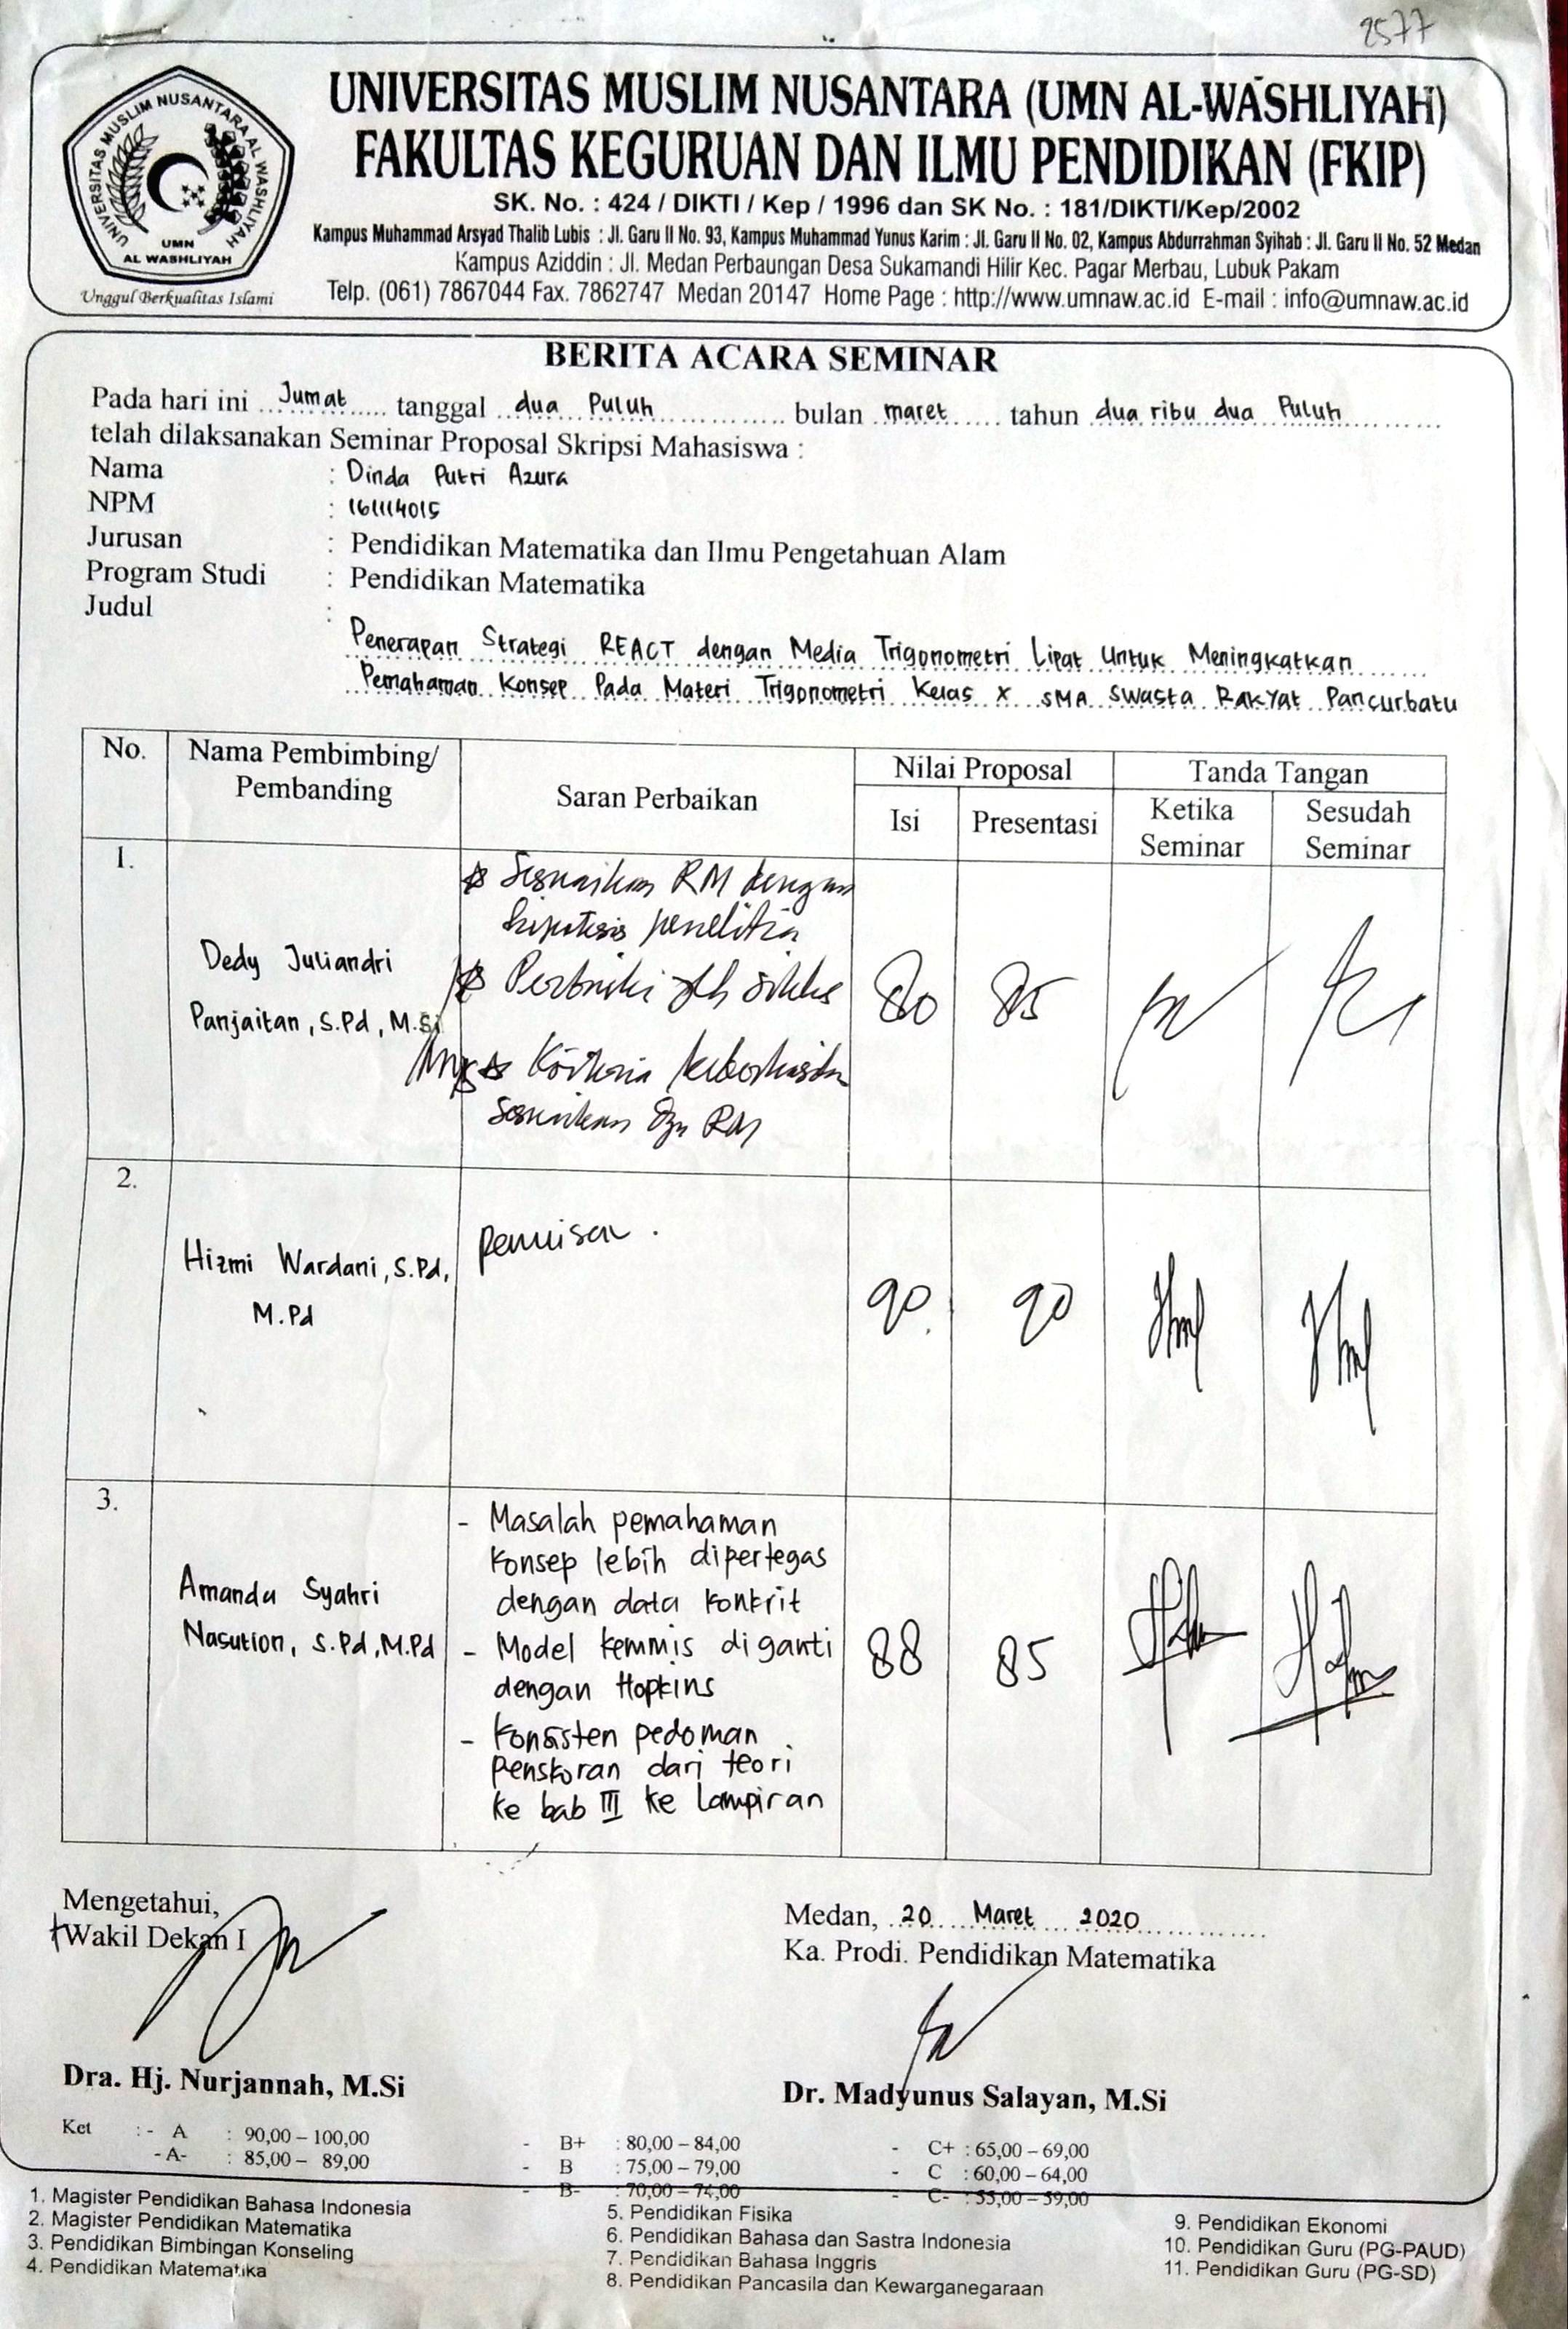 2577
UNIVERSITAS MUSLIM NUSANTARA AL WASHLIYAH
UMN
AL WASHLIYAH
Unggul Berkualitas Islami
UNIVERSITAS MUSLIM NUSANTARA (UMN AL-WASHLIYAH)
FAKULTAS KEGURUAN DAN ILMU PENDIDIKAN (FKIP)
SK. No. : 424 / DIKTI / Kep / 1996 dan SK No. : 181/DIKTI/Kep/2002
Kampus Muhammad Arsyad Thalib Lubis : Jl. Garu II No. 93, Kampus Muhammad Yunus Karim : Jl. Garu II No. 02, Kampus Abdurrahman Syihab : Jl. Garu II No. 52 Medan
Kampus Aziddin : Jl. Medan Perbaungan Desa Sukamandi Hilir Kec. Pagar Merbau, Lubuk Pakam
Telp. (061) 7867044 Fax. 7862747 Medan 20147 Home Page : http://www.umnaw.ac.id E-mail : info@umnaw.ac.id
BERITA ACARA SEMINAR
Pada hari ini Jumat tanggal dua Puluh bulan maret tahun dua ribu dua Puluh
telah dilaksanakan Seminar Proposal Skripsi Mahasiswa :
Nama : Dinda Putri Azura
NPM : 161114015
Jurusan : Pendidikan Matematika dan Ilmu Pengetahuan Alam
Program Studi : Pendidikan Matematika
Judul :
Penerapan Strategi REACT dengan Media Trigonometri Lipat Untuk Meningkatkan
Pemahaman Konsep Pada Materi Trigonometri Kelas X SMA Swasta Rakyat Pancurbatu
No. Nama Pembimbing/ Pembanding Saran Perbaikan Nilai Proposal Tanda Tangan
Isi Presentasi Ketika Seminar Sesudah Seminar
1.
Dedy Juliandri
Panjaitan, S.Pd, M.Si
Sesuaikan RM dengan
hipotesis penelitian
Perbaiki jlh siklus
Kriteria keberhasilan
Sesuaikan dgn RM
80 85
2.
Hizmi Wardani, S.Pd,
M.Pd
90 90
3.
Amanda Syahri
Nasution, S.Pd, M.Pd
- Masalah pemahaman
konsep lebih dipertegas
dengan data konkrit
- Model kemmis diganti
dengan Hopkins
- Konsisten pedoman
penskoran dari teori
ke bab III ke lampiran
88 85
Mengetahui,
Wakil Dekan I
Dra. Hj. Nurjannah, M.Si
Medan, 20 Maret 2020
Ka. Prodi. Pendidikan Matematika
Dr. Madyunus Salayan, M.Si
Ket : - A : 90,00 – 100,00
- A- : 85,00 – 89,00
- B+ : 80,00 – 84,00
- B : 75,00 – 79,00
- B- : 70,00 – 74,00
- C+ : 65,00 – 69,00
- C : 60,00 – 64,00
- C- : 55,00 – 59,00
1. Magister Pendidikan Bahasa Indonesia
2. Magister Pendidikan Matematika
3. Pendidikan Bimbingan Konseling
4. Pendidikan Matematika
5. Pendidikan Fisika
6. Pendidikan Bahasa dan Sastra Indonesia
7. Pendidikan Bahasa Inggris
8. Pendidikan Pancasila dan Kewarganegaraan
9. Pendidikan Ekonomi
10. Pendidikan Guru (PG-PAUD)
11. Pendidikan Guru (PG-SD)